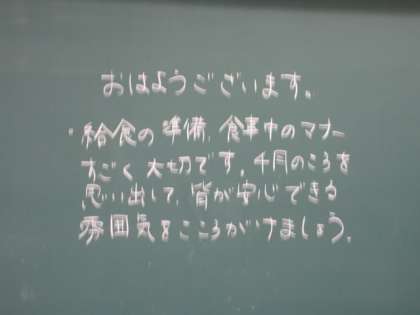 おはようございます。
・給食の準備、食事中のマナー
すごく大切です。4月のころを
思い出して、皆が安心できる
雰囲気をこころがけましょう。